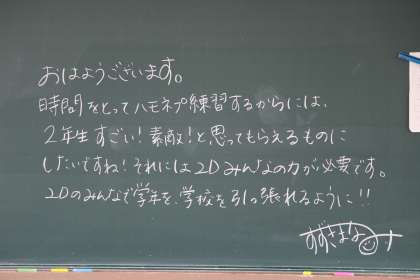 おはようございます。
時間をとってハモネプ練習するからには、
2年生すごい!素敵!と思ってもらえるものに
したいですね!それには2Dみんなの力が必要です。
2Dのみんなで学年を、学校を引っ張れるように!!